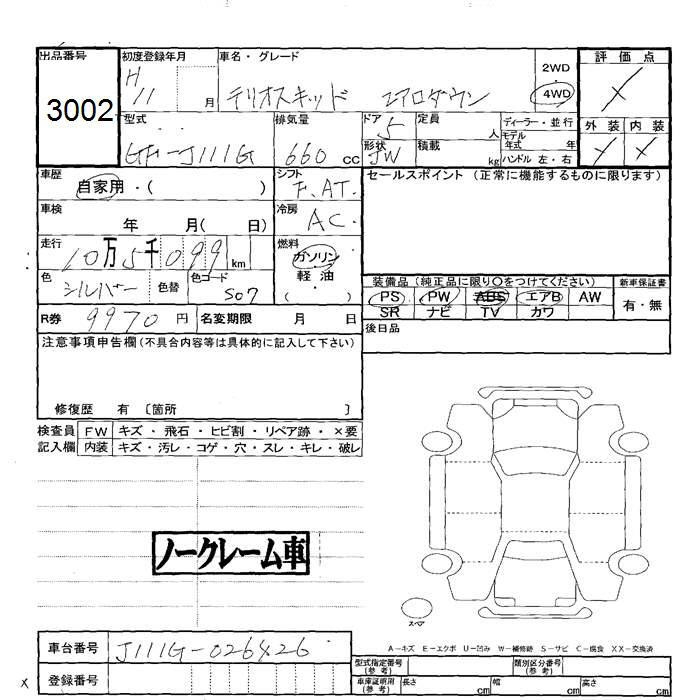 出品番号 初度登録年月 車名・グレード 2WD 評価点
3002 H 11 月 テリオスキッド エアロダウン 4WD X
型式 排気量 ドア 定員 ディーラー・並行 外装 内装
GF-J111G 660 cc 5 人 モデル年式 年 X X
形状 JW 積載 kg ハンドル 左・右
車歴 シフト セールスポイント (正常に機能するものに限ります)
自家用・( ) F.AT.
車検 冷房
年 月( 日) AC
走行 燃料
10万5千099 km ガソリン
色 色替 色コード 軽油 装備品 (純正品に限り○をつけてください) 新車保証書
シルバー S07 ( ) PS PW ABS エアB AW 有・無
SR ナビ TV カワ
R券 9970 円 名変期限 月 日 後日品
注意事項申告欄(不具合内容等は具体的に記入して下さい)
修復歴 有 〔箇所 〕
検査員 FW キズ・飛石・ヒビ割・リペア跡・×要
記入欄 内装 キズ・汚レ・コゲ・穴・スレ・キレ・破レ
ノークレーム車
スペア
A-キズ E-エクボ U-凹み W-補修跡 S-サビ C-腐食 XX-交換済
車台番号 J111G-026426
型式指定番号(参考) 類別区分番号(参考)
X 登録番号 車庫証明用(参考) 長さ cm 幅 cm 高さ cm